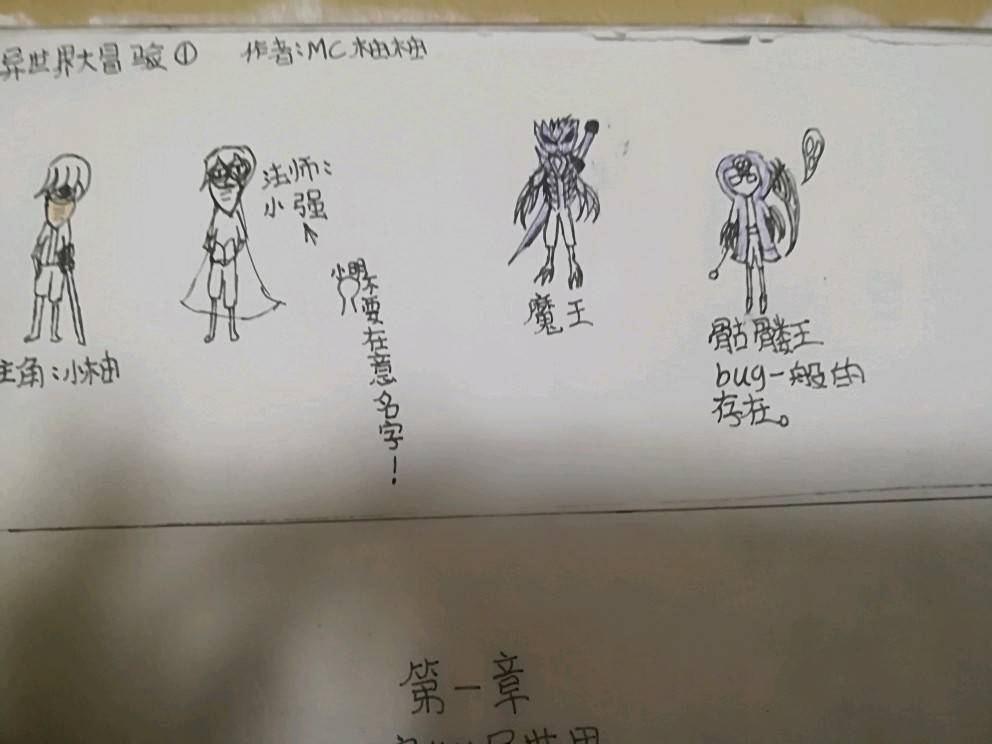 异世界大冒验① 作者:MC柚柚
主角:小柚
法师:
小强
不要在意名字!
魔王
骷髅王
bug一般的
存在。
第一章